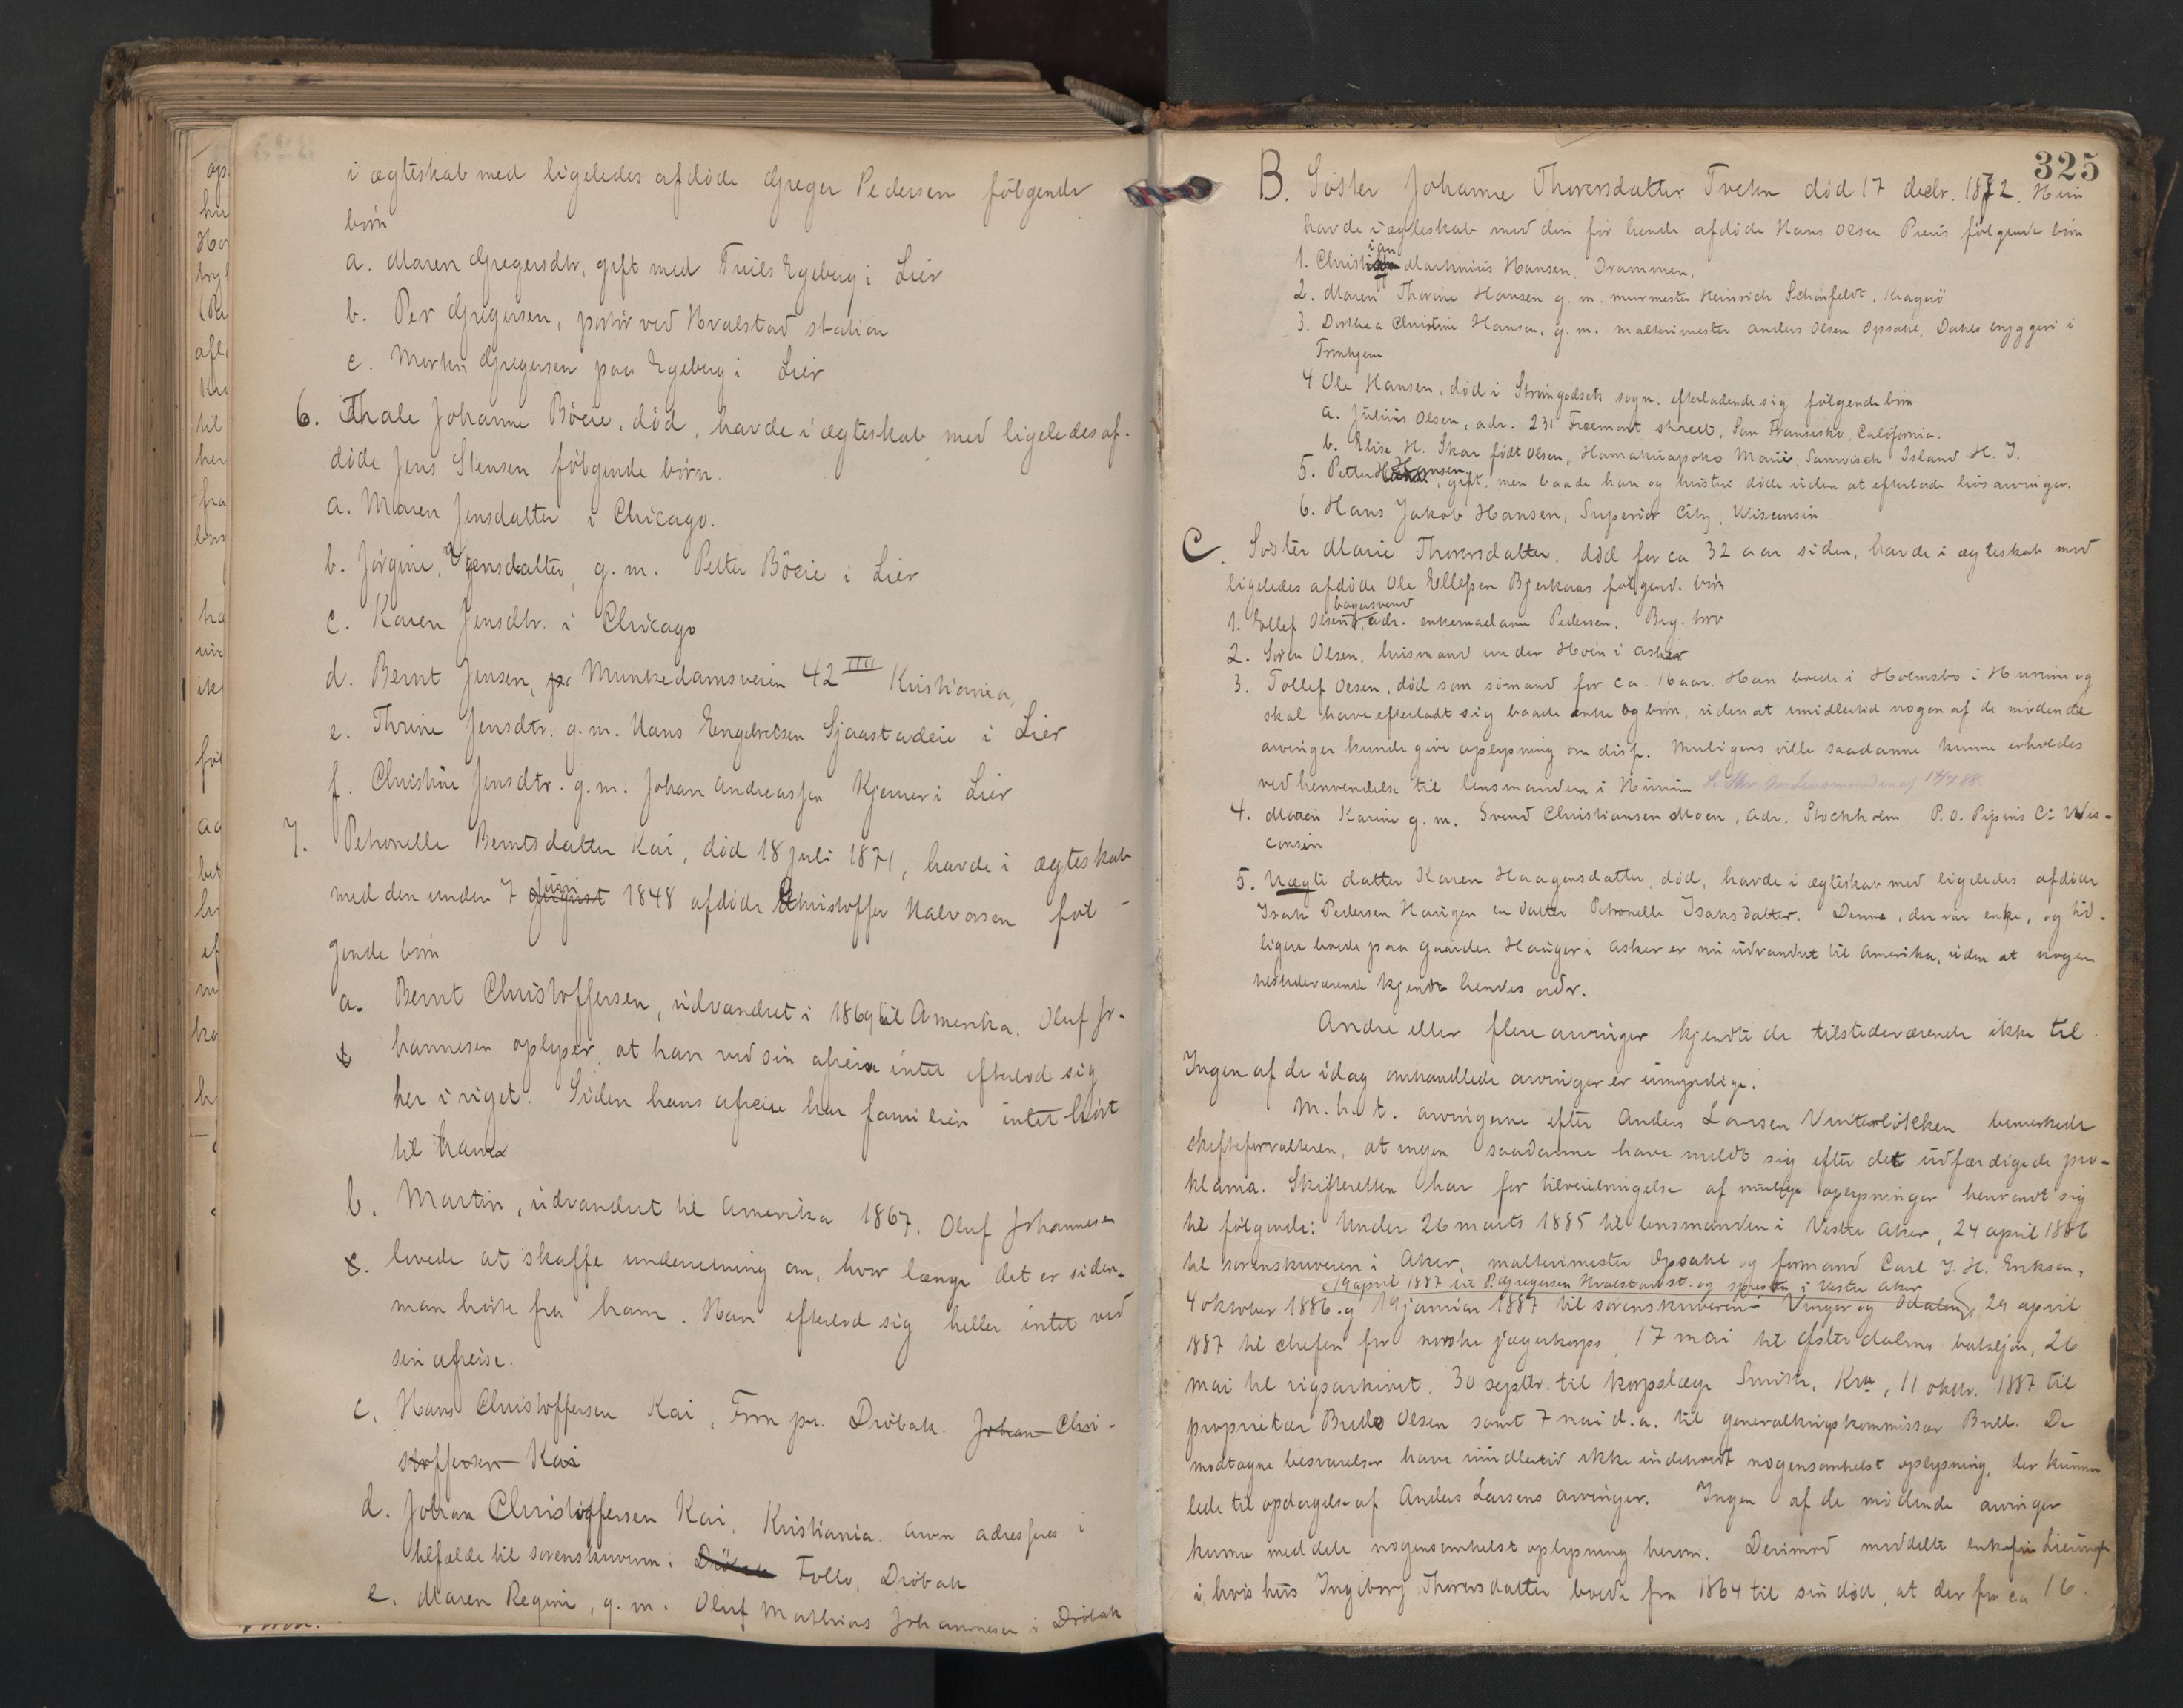 i ægteskab med ligeledes afdöde Greger Pedersen fölgende
börn
a. Maren Gregersdtr, gift med Truls Egeberg i Lier
b. Per Gregersen, portör ved Hvalstad station
c. Morten Gregersen paa Egeberg i Lier
6. Thale Johanne Böeie, död, havde i ægteskab med ligeledes af-
döde Jens Stensen fölgende börn.
a. Maren Jensdatter i Chicago.
b. Jörgine Jensdatter, g. m. Petter Böeie i Lier
c. Karen Jensdtr. i Chicago
d. Bernt Jensen, Munkedamsveien 42 III Kristiania,
e. Thrine Jensdtr. g. m. Hans Engebretsen Gjaastadeie i Lier
f. Christine Jensdtr. g. m. Johan Andreassen Kjerner i Lier
7. Petronelle Berntsdatter Kai, död 18 juli 1871, havde i ægteskab
med den under 7 august juni 1848 afdöde Christoffer Halvorsen föl-
gende börn
a. Bernt Christoffersen, udvandret i 1869 til Amerika. Oluf Jo-
hannesen oplyser, at han ved sin afreise intet efterlod sig
her i riget. Siden hans afreise har familien intet hört
til ham
b. Martin, udvandret til Amerika 1867. Oluf Johannesen
c. lovede at skaffe underretning om, hvor længe det er siden
man hörte fra ham. Han efterlod sig heller intet ved
sin afreise.
c. Hans Christoffersen Kai, Fron pr. Dröbak. Johan Chri-
stoffersen Kai
d. Johan Christoffersen Kai, Kristiania. Arven adresseres i
tilfælde til sorenskriveren i Dröbak Follo, Dröbak
e. Maren Regine, g. m. Oluf Mathias Johannesen i Dröbak
325
B. Söster Johanne Thorersdatter Tveten död 17 decbr. 1872. Hun
havde i ægteskab med den för hende afdöde Hans Olsen Preus fölgende börn
1. Christian Marthinius Hansen, Drammen.
2. Maren Thorine Hansen g. m. murmester Heinrich Schönfeldt, Kragerö
3. Dorthea Christine Hansen, g. m. maltermester Anders Olsen Opsahl, Dahls bryggeri i
Tronhjem
4 Ole Hansen, död i Strömgodsets sogn, efterladende sig fölgende börn
a. Julius Olsen, adr. 231 Freemont street, San Fransisko, California.
b. Elise H. Skar födt Olsen, Hamakuapoko Maui, Sanwisch Island H. I.
5. Petter Hansen, gift, men baade han og hustru döde uden at efterlade livsarvinger.
6. Hans Jakob Hansen, Superior City, Wisconsin
C. Söster Marie Thorersdatter, död for ca 32 aar siden, havde i ægteskab med
ligeledes afdöde Ole Ellefsen Bjerkaas fölgende börn
1. Ellef Olsen, bagersvend adr. enkemadame Pedersen, Brg. bro
2. Sören Olsen, husmand under Hvin i Asker
3. Tollef Olsen, död som sömand for ca. 16 aar. Han boede i Holmsbo i Hurum og
skal have efterladt sig baade enke og börn, uden at imidlertid nogen af de mödende
arvinger kunde give oplysning om disse. Muligens ville saadanne kunne erholdes
ved henvendelse til lensmanden i Hurum
4. Maren Karine g. m. Svend Christiansen Moen, adr. Stockholm P. O. Pipins Co Wis-
consin
5. Uægte datter Karen Haagensdatter, död, havde i ægteskab med ligeledes afdöde
Isak Pedersen Haugen en datter Petronelle Isaksdatter. Denne, der var enke, og tid-
ligere boede paa gaarden Hauger i Asker er nu udvandret til Amerika, uden at nogen
tilstedeværende kjendte hendes adr.
Andre eller flere arvinger kjendte de tilstedeværende ikke til
Ingen af de idag omhandlede arvinger er umyndige.
M. h. t. arvingerne efter Anders Larsen Vinterlökken bemærkede
skifteforvalteren, at ingen saadanne have meldt sig efter det udfærdigede pro-
klama. Skifteretten har for tilveiebringelse af mulige oplysninger henvendt sig
til fölgende: Under 26 marts 1885 til lensmanden i Vestre Aker, 24 april 1886
til sorenskriveren i Aker, maltermester Opsahl og formand Carl J. H. Eriksen,
19 april 1887 til P. Gregersen Hvalstad st. og presten i Vestre Aker
4 oktober 1886 og 19 januar 1887 til sorenskriveren i Vinger og Odalen, 29 april
1887 til chefen for norske jægerkorps, 17 mai til Österdalens bataljon, 26
mai til rigsarkivet, 30 septbr. til korpslæge Smith, Kra, 11 oktbr. 1887 til
proprietær Brude Olsen samt 7 mai d. a. til generalkrigskommissær Bull. De
modtagne besvarelser have imidlertid ikke indeholdt nogensomhelst oplysning, der kunne
lede til opdagelse af Anders Larsens arvinger. Ingen af de mödende arvinger
kunne meddele nogensomhelst oplysning herom. Derimod meddelte enkefru
i hvis hus Ingeborg Thorersdatter boede fra 1864 til sin död, at der for ca 16